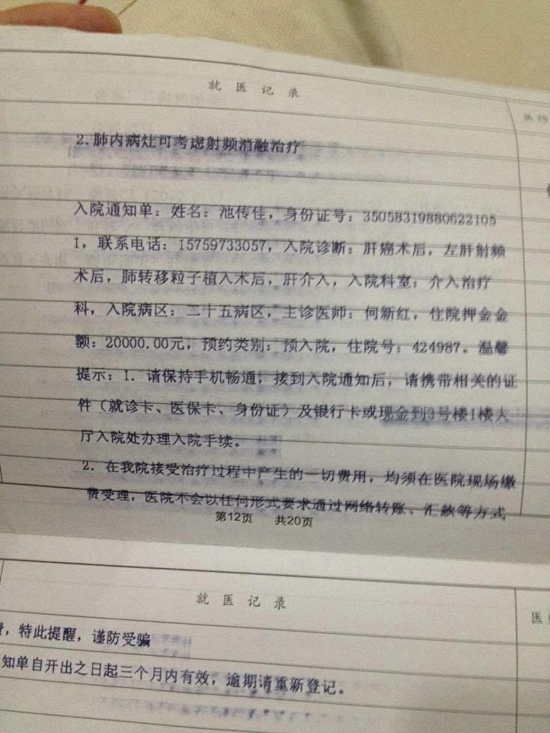 就医记录
2.肺内病灶可考虑射频消融治疗
入院通知单：姓名：池传佳，身份证号：35058319880622105
1，联系电话：15759733057，入院诊断：肝癌术后，左肝射频
术后，肺转移粒子植入术后，肝介入，入院科室：介入治疗
科，入院病区：二十五病区，主诊医师：何新红，住院押金金
额：20000.00元，预约类别：预入院，住院号：424987。温馨
提示：1．请保持手机畅通，接到入院通知后，请携带相关的证
件（就诊卡、医保卡、身份证）及银行卡或现金到3号楼1楼大
厅入院处办理入院手续。
2．在我院接受治疗过程中产生的一切费用，均须在医院现场缴
费受理，医院不会以任何形式要求通过网络转账、汇款等方式
第12页 共20页
就医记录
医
，特此提醒，谨防受骗
知单自开出之日起三个月内有效，逾期请重新登记。